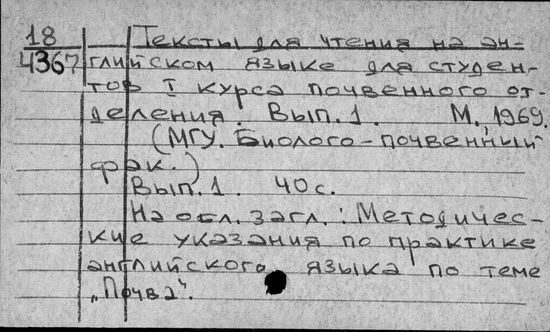 18
4367
Тексты для чтения на ан-
глийском языке для студен-
тов I курса почвенного от-
деления. Вып. 1. М., 1969.
(МГУ. Биолого-почвенный
фак.)
Вып. 1. 40 с.
На обл. загл.: Методичес-
кие указания по практике
английского языка по теме
„Почва".